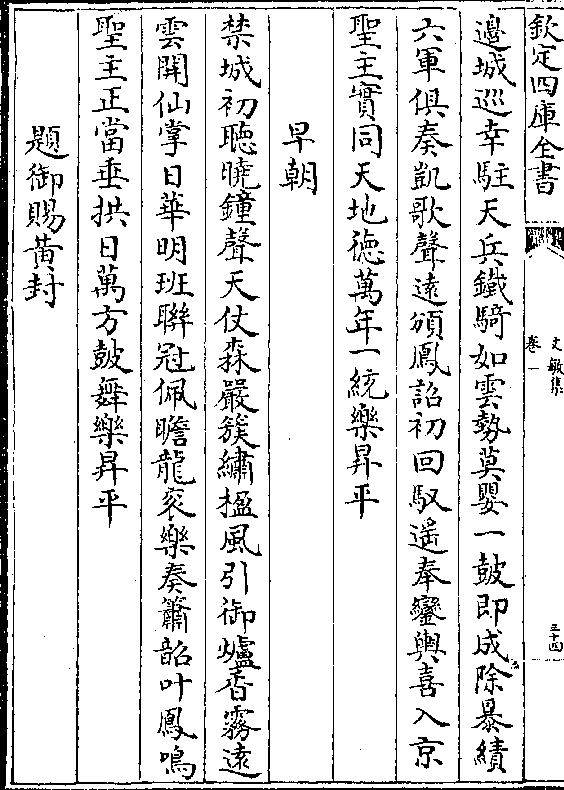 欽定四庫全書
文敏集
卷一
三十四
邊城巡幸駐天兵鐵騎如雲勢莫嬰一鼓即成除暴績
六軍俱奏凱歌聲遠頒鳳詔初回馭遥奉鑾輿喜入京
聖主實同天地徳萬年一統樂昇平
早朝
禁城初聽曉鐘聲天仗森嚴簇繡楹風引御爐香霧遠
雲開仙掌日華明班聯冠佩瞻龍衮樂奏簫韶叶鳳鳴
聖主正當垂拱日萬方鼓舞樂昇平
題御賜黃封